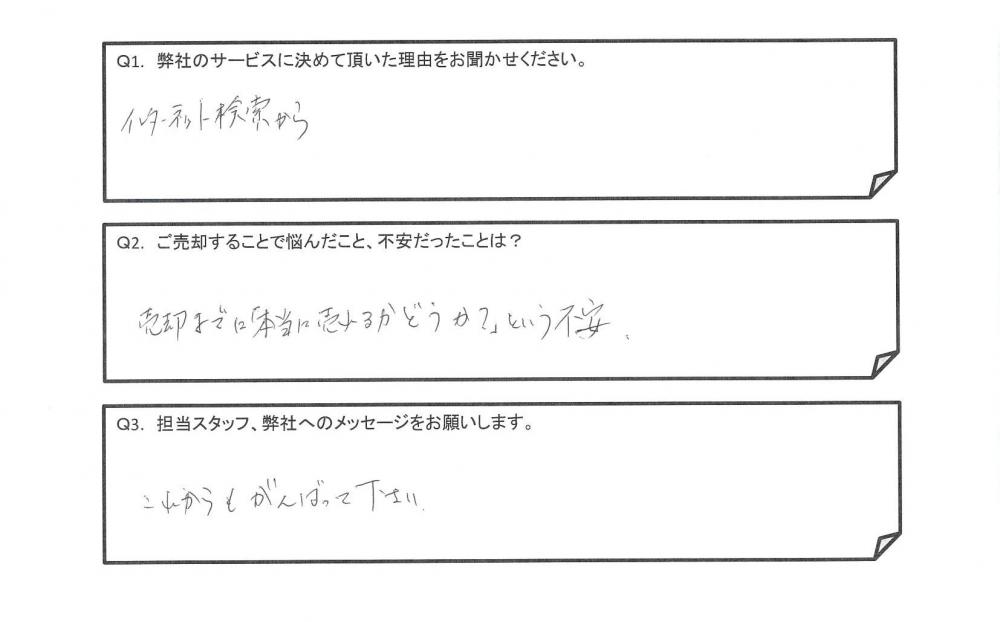 Q1. 弊社のサービスに決めて頂いた理由をお聞かせください。
インターネット検索から
Q2. ご売却することで悩んだこと、不安だったことは？
売却までに「本当に売れるかどうか？」という不安.
Q3. 担当スタッフ、弊社へのメッセージをお願いします。
これからもがんばって下さい.